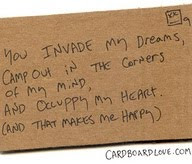 YOU INVADE My DREAMS,
CAMP OUT IN THE CORNERS
OF MY MIND,
AND OCCUPPY My HEART.
(AND THAT MAKES ME HAPPY)
CARDBOARDLOVE.COM